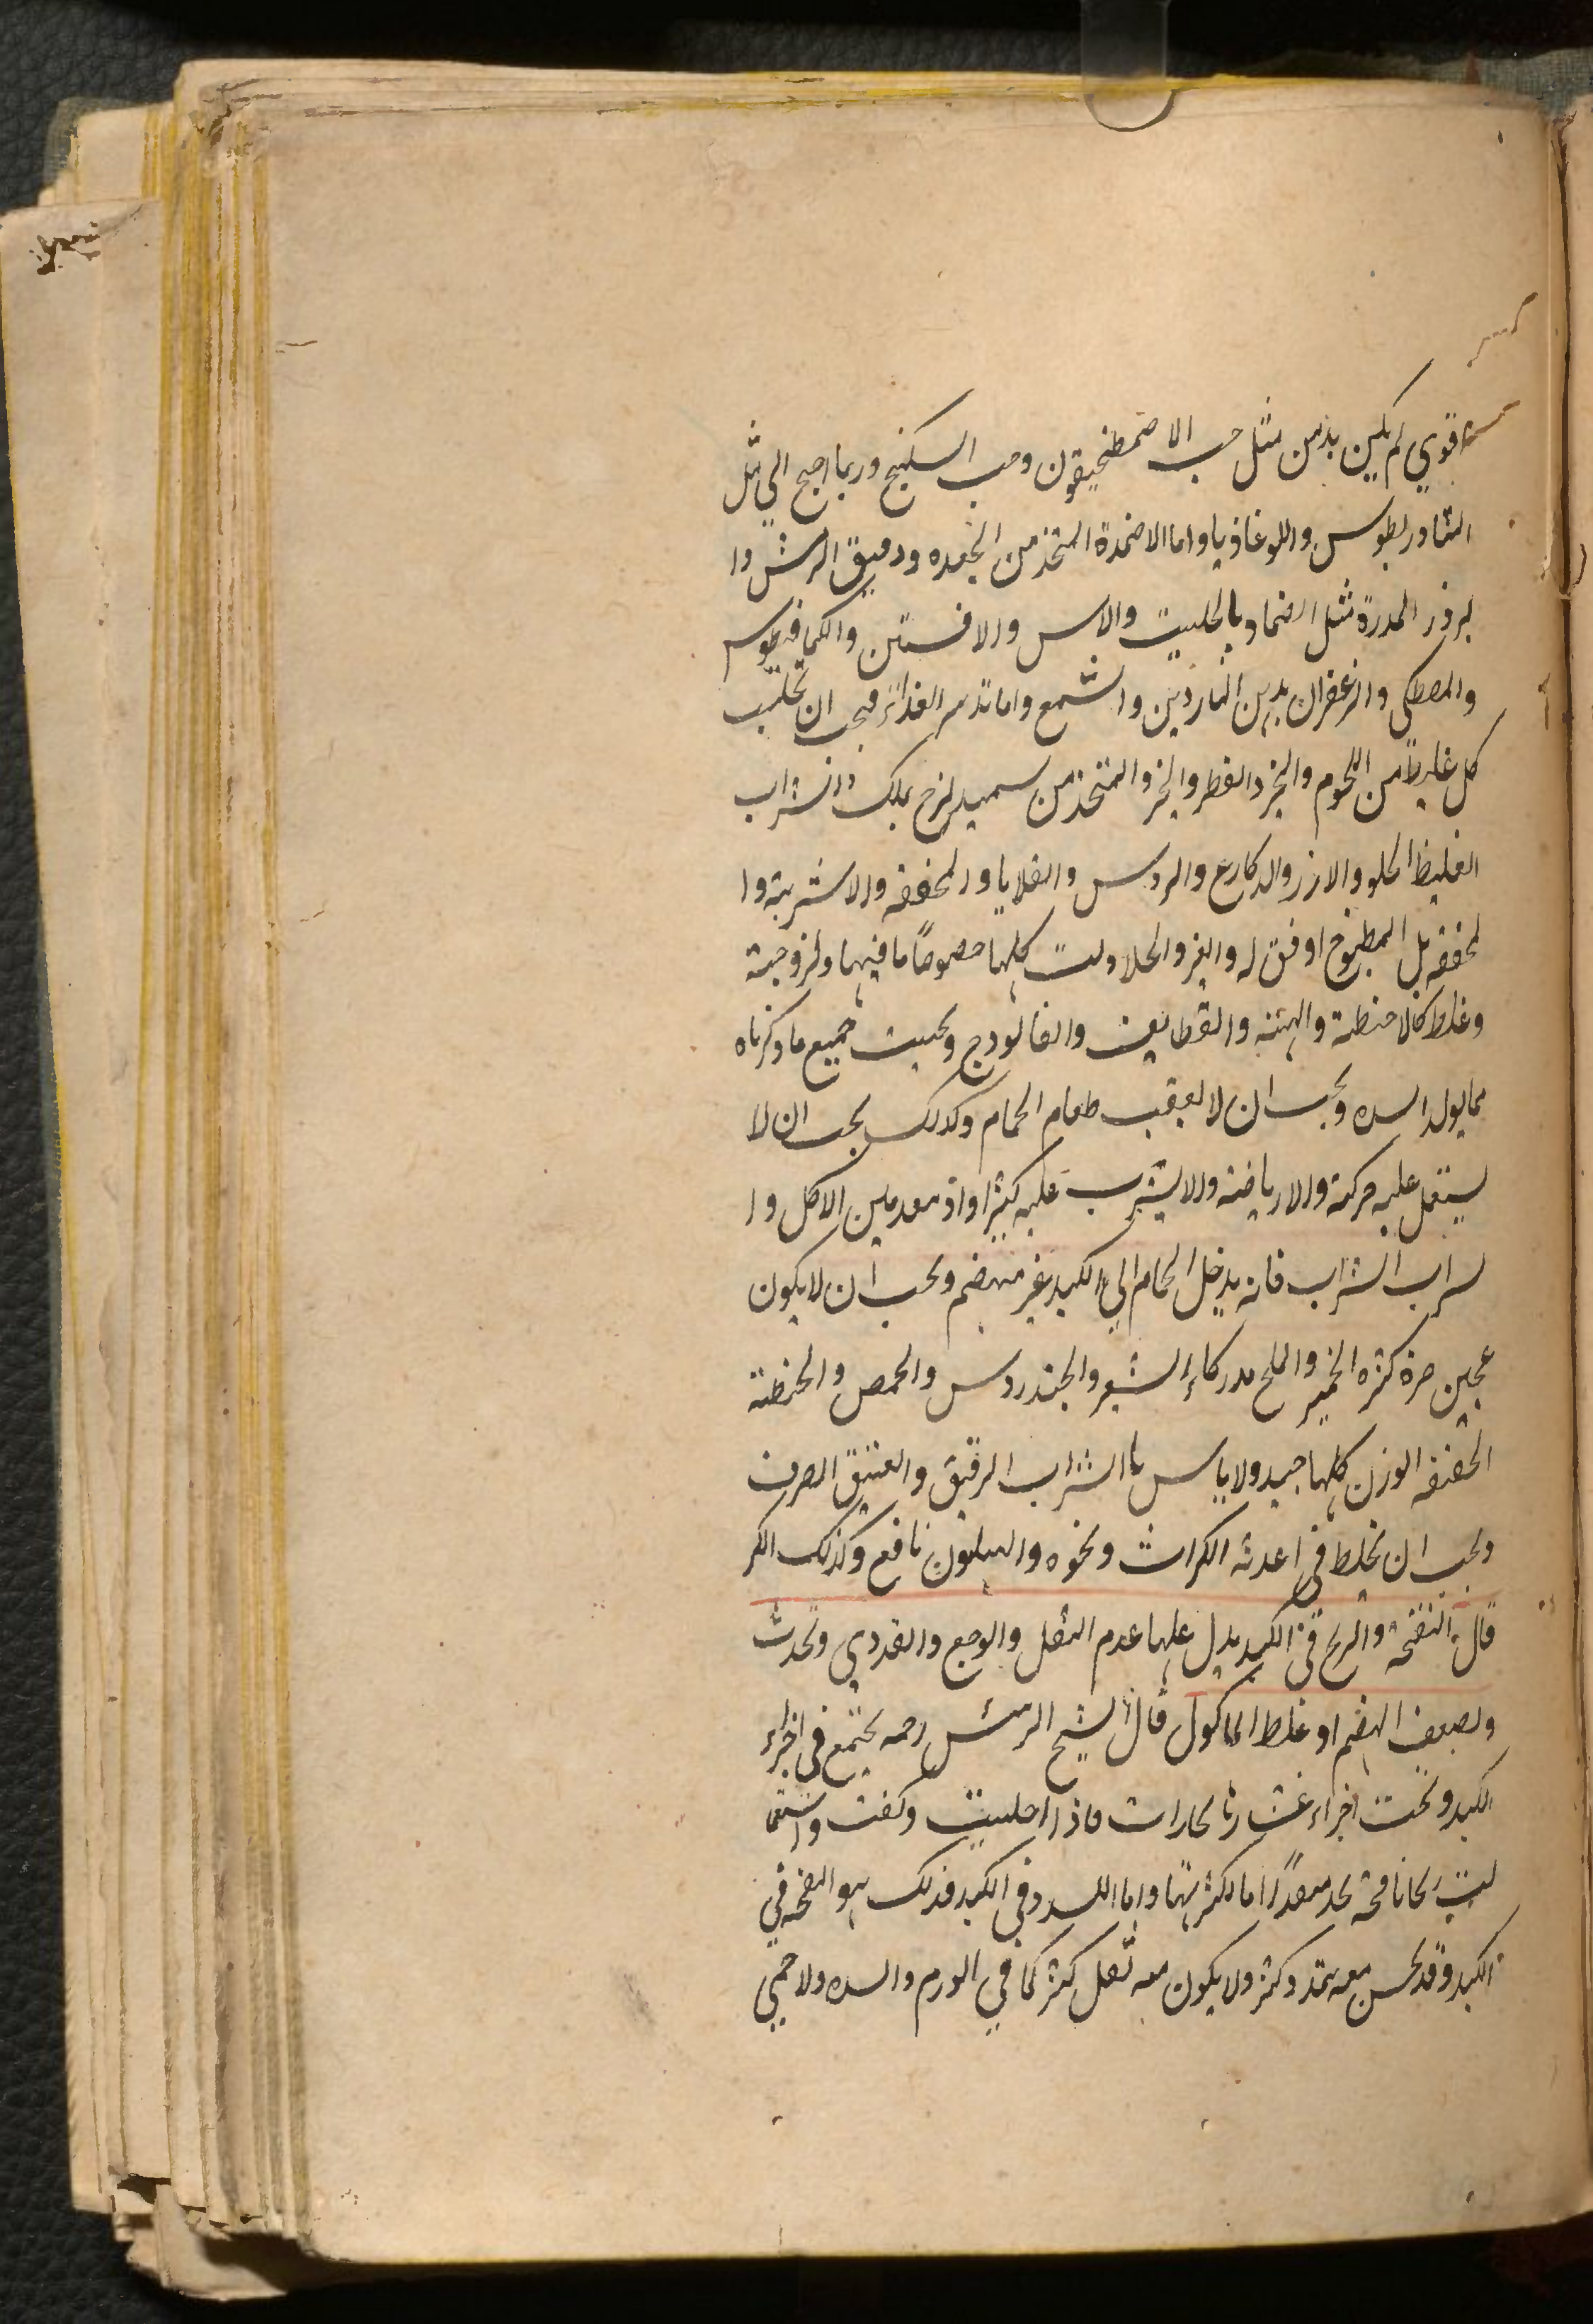 قوي لم يكن بد من مثل حب الاصمطخيقون وحب السكبنج وربما احتج الي مثل
التيادريطوس واللوغاذيا واما الاضمدة المتخذ من الجعده ودقيق الترمس وا
لبزور المدرة مثل الضماد بالحلتيت والاس والافسنتين والكمافيطوس
والمصطكى والزعفران بدهن الناردين والشمع واما تدبير الغذائ فيجب ان يجتنب
كل غليظ من اللحوم والخبز والفطر والخبز والمتخذ من سميد لزج علك والشراب
الغليظ الحلو والارز والاكارع والروس والقلايا والمجففه والاشربة وا
لمجففه بل المطبوخ اوفق له والتمر والحلاوات كلها خصوصاً ما فيها ولزوجة
وغلظ كالاخبصة والبهتة والقطايف والفالوذج وتجنب جميع ما ذكرناه
مما يولد السدد ويجب ان لا يعقب طعام الحمام وكذلك يجب ان لا
يستعمل عليه حركة والا رياضة والا يشرب عليه كثيرا واذ بعد بين الاكل وا
لشراب الشراب فانه يدخل الحمام الي الكبد غير منهضم ويجب ان لا يكون
عجين خبزه كثره الخمير والملح مدركا والشعير والخندروس والحمص والحنطة
الخفيفه الوزن كلها جيد ولا باس با الشراب الرقيق والعتيق الصرف
ويجب ان يخلط في اغذيته الكراث ونحوه والهليون نافع وكذلك الكبر
قال النفخة والريح في الكبد يدل عليها عدم الثقل والوجع والتمددي ويحدث
ولضعف الهضم او غلظ الماكول قال الشيخ الرئيس رحمه يجتمع في اجزاء
الكبد وتحت اجزاء غشائها بخارات فاذا احتبست وكثفت واستحا
لت ريحا نافخة لا تجد منفذاً اما لكثرتها واما للسدد في الكبد فذلك هو النفخه في
الكبد وقد يحس معه تمدد وكثر ولا يكون معه ثقل كثير كما في الورم والسدد ولا حمي